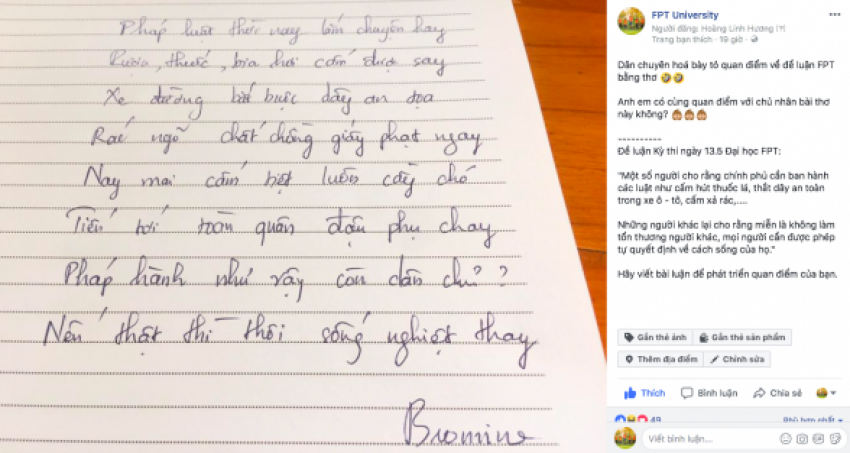 Pháp luật thời nay lắm chuyện hay
Rượu, thuốc, bia hơi cấm được say
Xe đường bắt buộc dây an tọa
Rác ngõ chất chồng giấy phạt ngay
Nay mai cấm biệt luôn cầy chó
Tiến tới toàn quân đậu phụ chay
Pháp hành như vậy còn dân chủ?
Nếu thật thì thôi sống nghiệt thay
Bromine
FPT University
Người đăng: Hoàng Linh Hương [?]
Trang bạn thích · 19 giờ ·
Dân chuyên hoá bày tỏ quan điểm về đề luận FPT
bằng thơ 🤣🤣
Anh em có cùng quan điểm với chủ nhân bài thơ
này không?
----------
Đề luận Kỳ thi ngày 13.5 Đại học FPT:
"Một số người cho rằng chính phủ cần ban hành
các luật như cấm hút thuốc lá, thắt dây an toàn
trong xe ô - tô, cấm xả rác,....
Những người khác lại cho rằng miễn là không làm
tổn thương người khác, mọi người cần được phép
tự quyết định về cách sống của họ."
Hãy viết bài luận để phát triển quan điểm của bạn.
Gắn thẻ ảnh Gắn thẻ sản phẩm
Thêm địa điểm Chỉnh sửa
Thích Bình luận Chia sẻ
49 Phù hợp nhất
Viết bình luận...